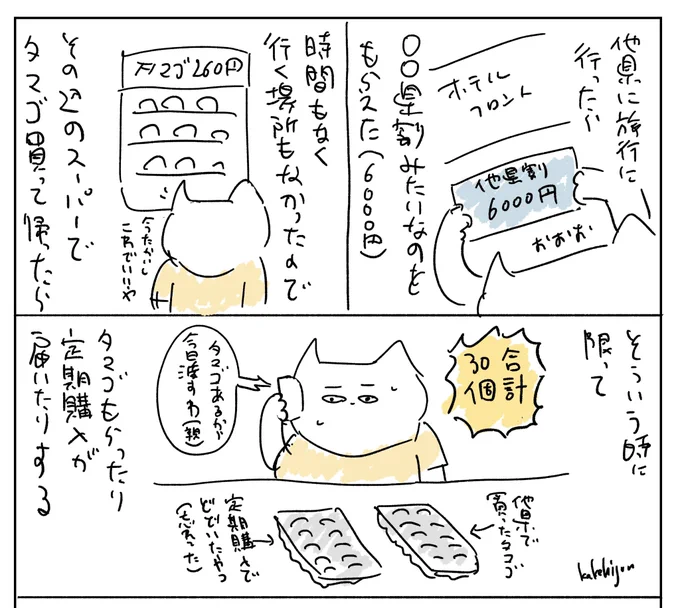 他県に旅行に
行ったら
ホテル
フロント
他県割
6000円
おおお
〇〇県割みたいなのを
もらえた(6000円)
時間もなく
行く場所もなかったので
タマゴ260円
今たかいし
これでいいや
その辺のスーパーで
タマゴ買って帰ったら
そういう時に
限って
合計
30個
タマゴあるから
今日渡すわ(親)
他県で
買ったタマゴ
定期購入で
とどいたやつ
(忘れてた)
タマゴもらったり
定期購入が
届いたりする